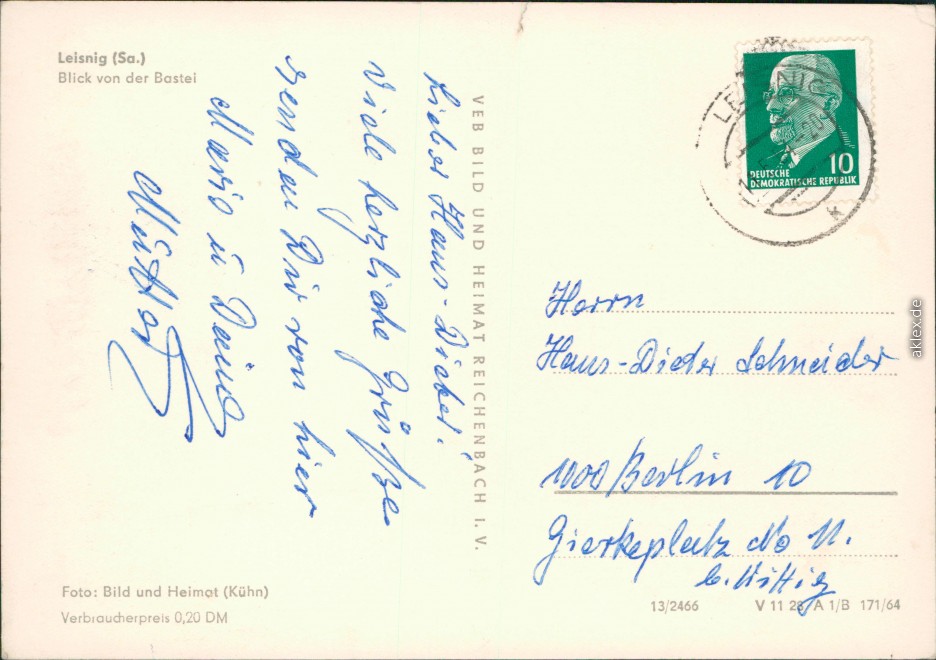 Leisnig (Sa.)
Blick von der Bastei
Lieber Hans-Dieter!
Viele herzliche Grüße
senden Dir von hier
Maria u Deine
Mutter
VEB BILD UND HEIMAT REICHENBACH I. V.
LEISNIG
10
DEUTSCHE
DEMOKRATISCHE REPUBLIK
k
Herrn
Hans-Dieter Schneider
1000 Berlin 10
Gierkeplatz No 11.
b. Wittig
Foto: Bild und Heimat (Kühn)
Verbraucherpreis 0,20 DM
13/2466 V 11 28 A 1/B 171/64
aklex.de